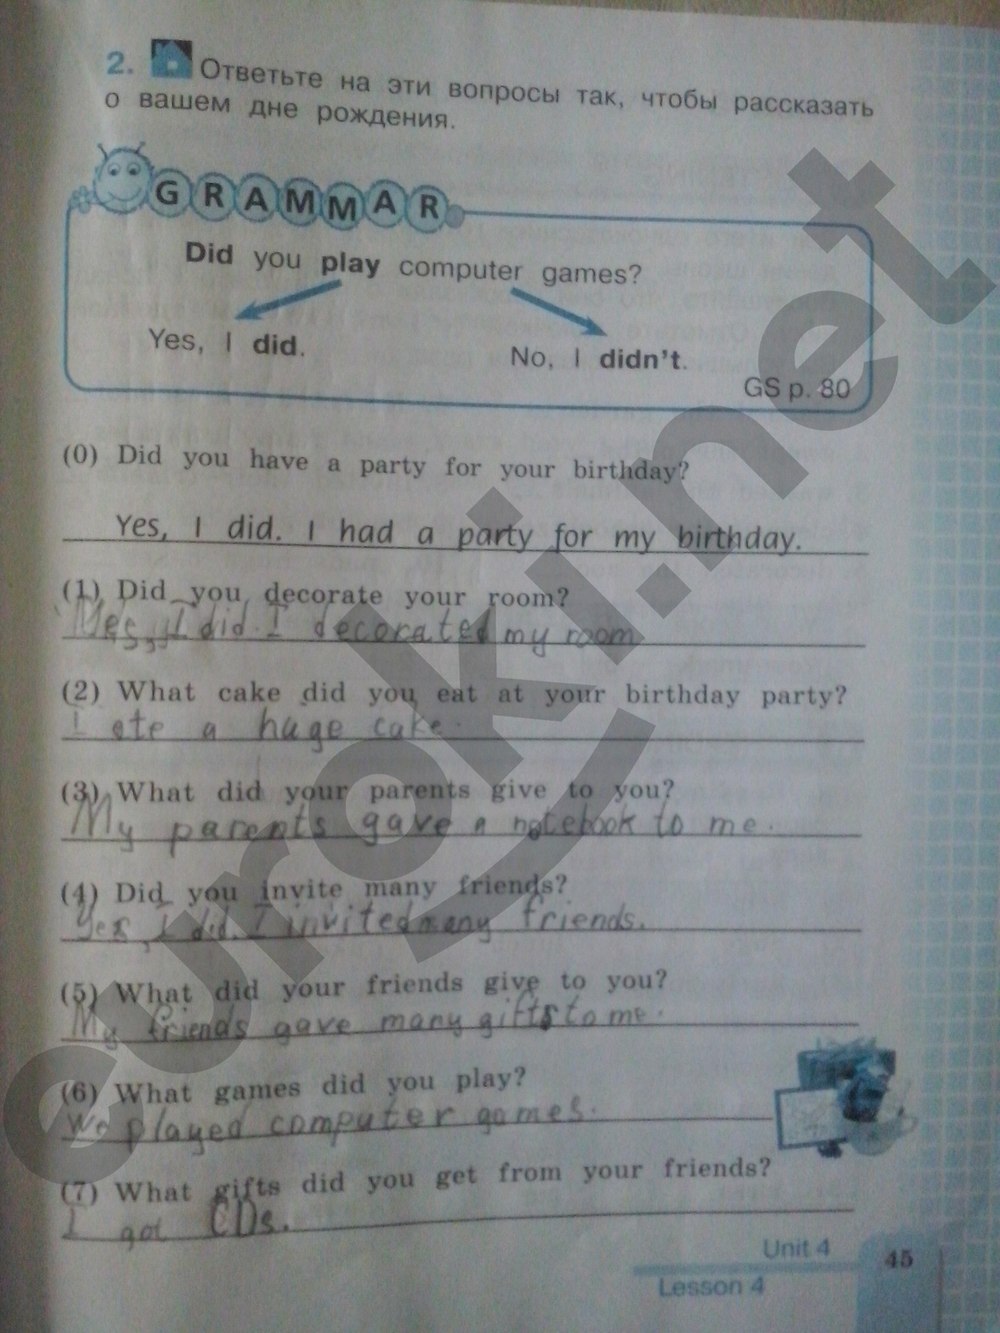 2. Ответьте на эти вопросы так, чтобы рассказать
о вашем дне рождения.
GRAMMAR
Did you play computer games?
Yes, I did.
No, I didn't.
GS p. 80
(0) Did you have a party for your birthday?
Yes, I did. I had a party for my birthday.
(1) Did you decorate your room?
Yes, I did. I decorated my room
(2) What cake did you eat at your birthday party?
I ate a huge cake.
(3) What did your parents give to you?
My parents gave a notebook to me.
(4) Did you invite many friends?
Yes, I did. I invited many friends.
(5) What did your friends give to you?
My friends gave many gifts to me.
(6) What games did you play?
We played computer games.
(7) What gifts did you get from your friends?
I got CDs.
Unit 4
Lesson 4
45
euroki.net